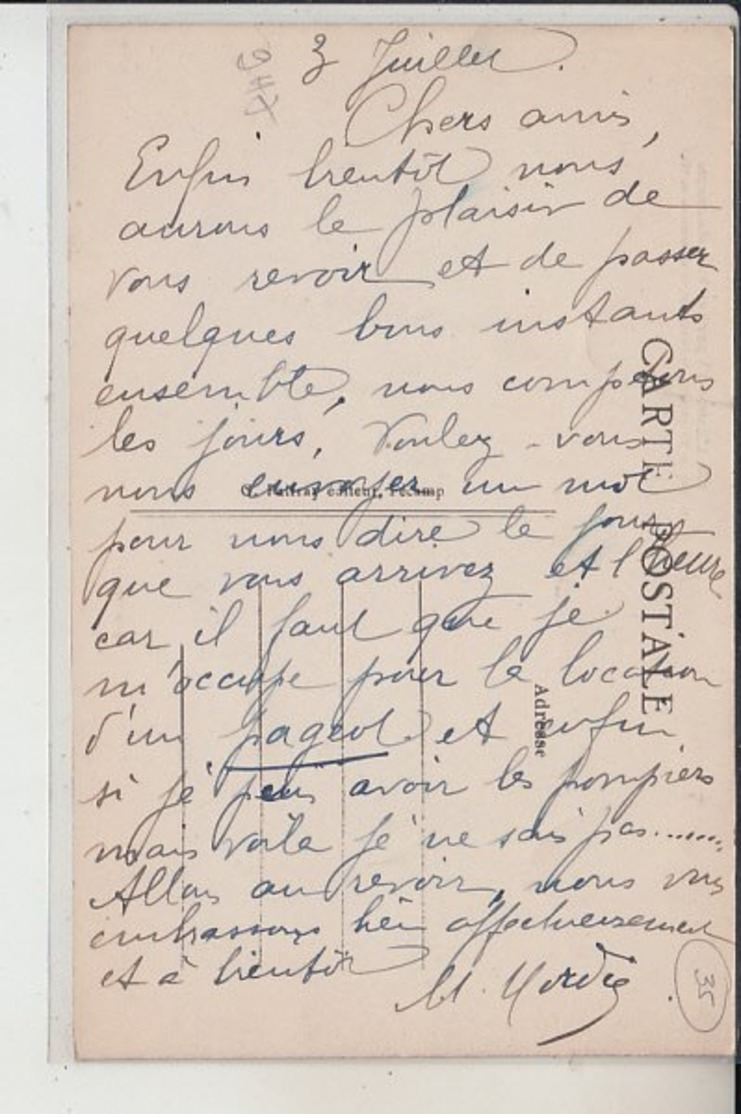 947
3 Juillet.
Chers amis,
Enfin bientôt nous
aurons le plaisir de
vous revoir et de passer
quelques bons instants
ensemble, nous comptons
les jours, Voulez-vous
nous envoyer un mot
pour nous dire le jour et
que vous arrivez et l'heure
car il faut que je
m'occupe pour la location
d'un pageot et enfin
si je peux avoir les pompiers
mais voila je ne sais pas.......
Allons au revoir, nous vous
embrassons bien affectueusement
et à bientôt
M.
35
CARTE POSTALE
Adresse
éditeur, Fécamp